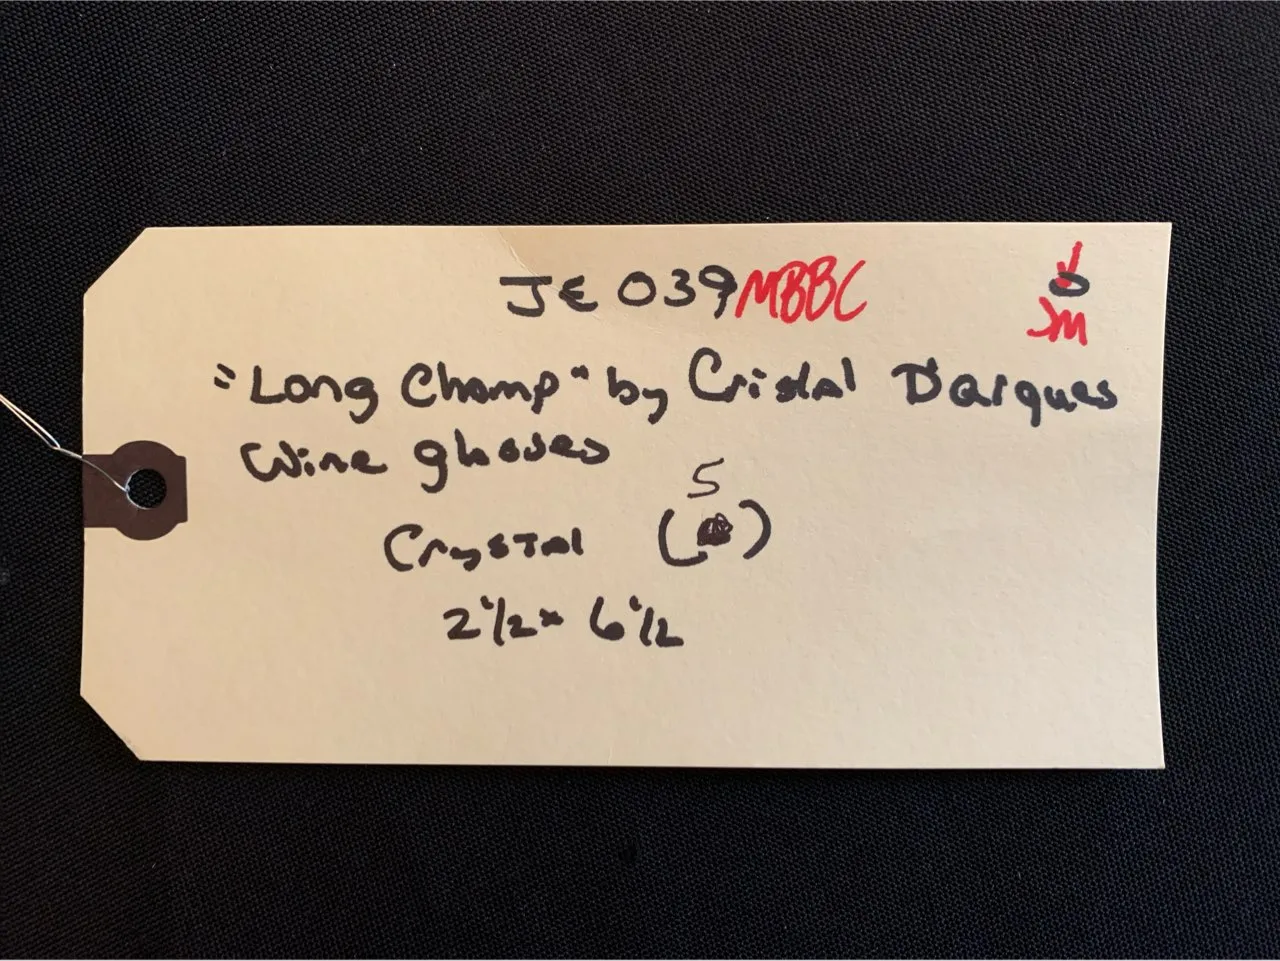 JE 039 MBBC
JM
"Long Champ" by Cristal D'arques
Wine glasses
5
Crystal ( )
2 1/2 x 6 1/2